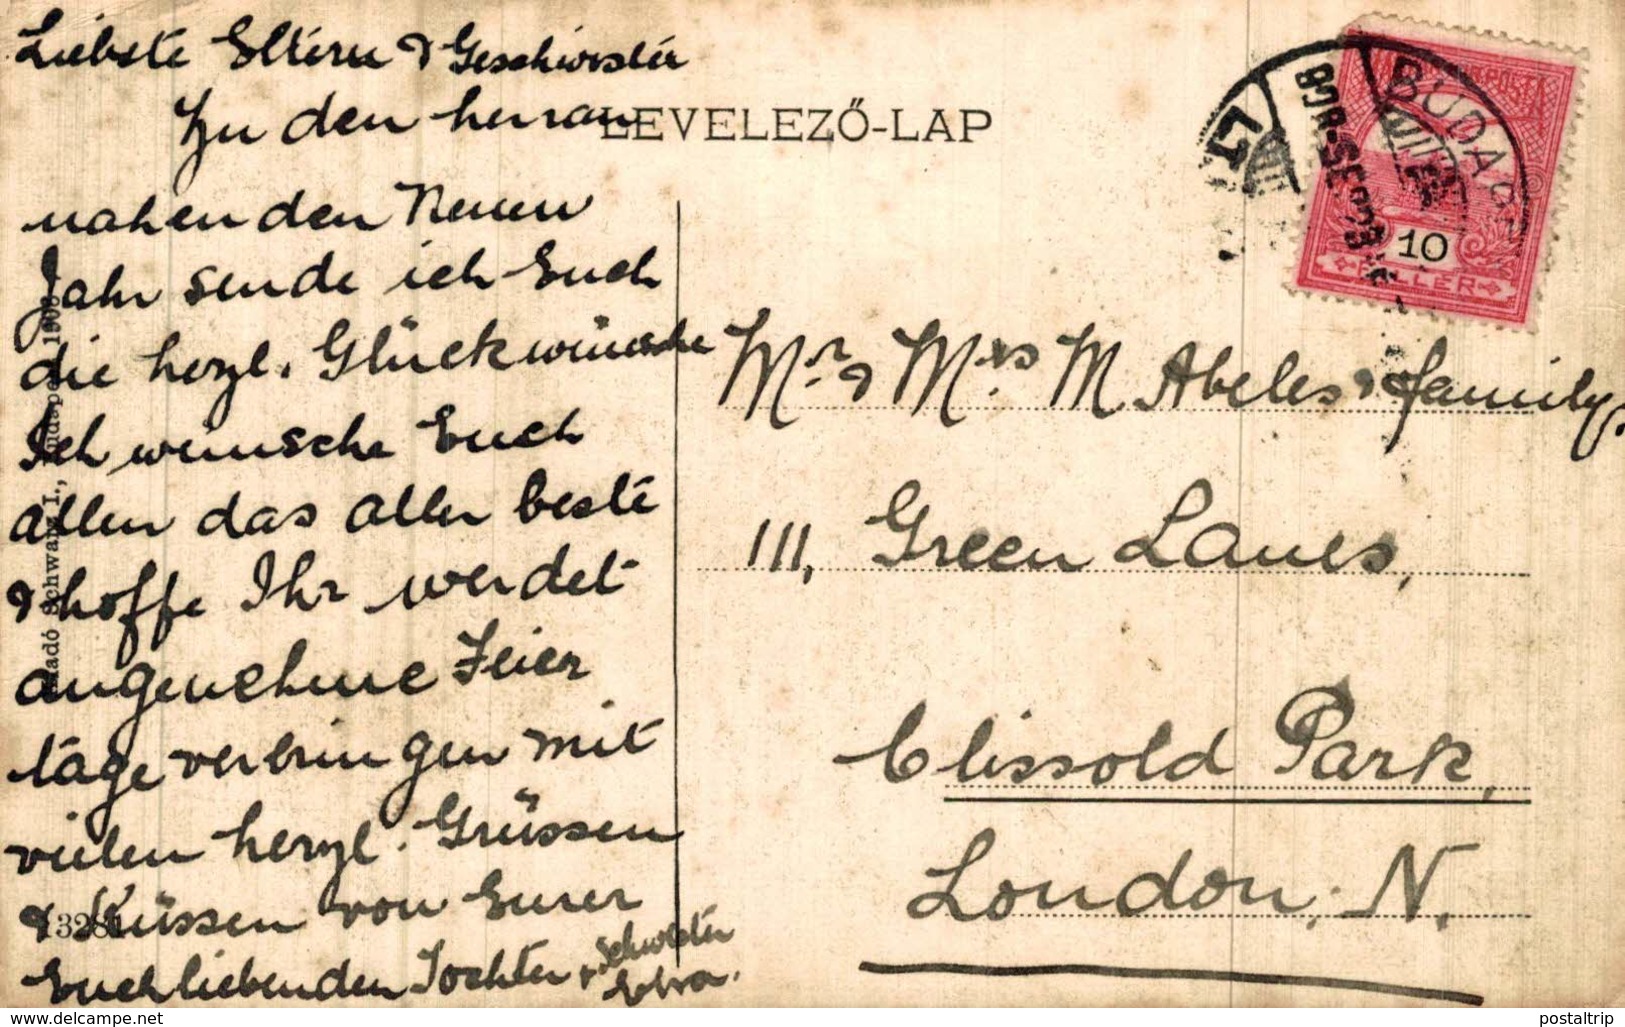 Liebste Eltern & Geschwister
Zu den herran
nahenden Neuen
Jahr sende ich Euch
die herzl. Glückwünsche
Ich wünsche Euch
allen das aller beste
& hoffe Ihr werdet
angenehme Feier
tage verbringen mit
vielen herzl. Grüssen
& Küssen von Eurer
Euch liebenden Tochter & Schwester
LEVELEZŐ-LAP
BUDAP
10
FILLER
Mr. & Mrs M Abeles & family,
111, Green Lanes,
Clissold Park,
London, N.
www.delcampe.net
postaltrip